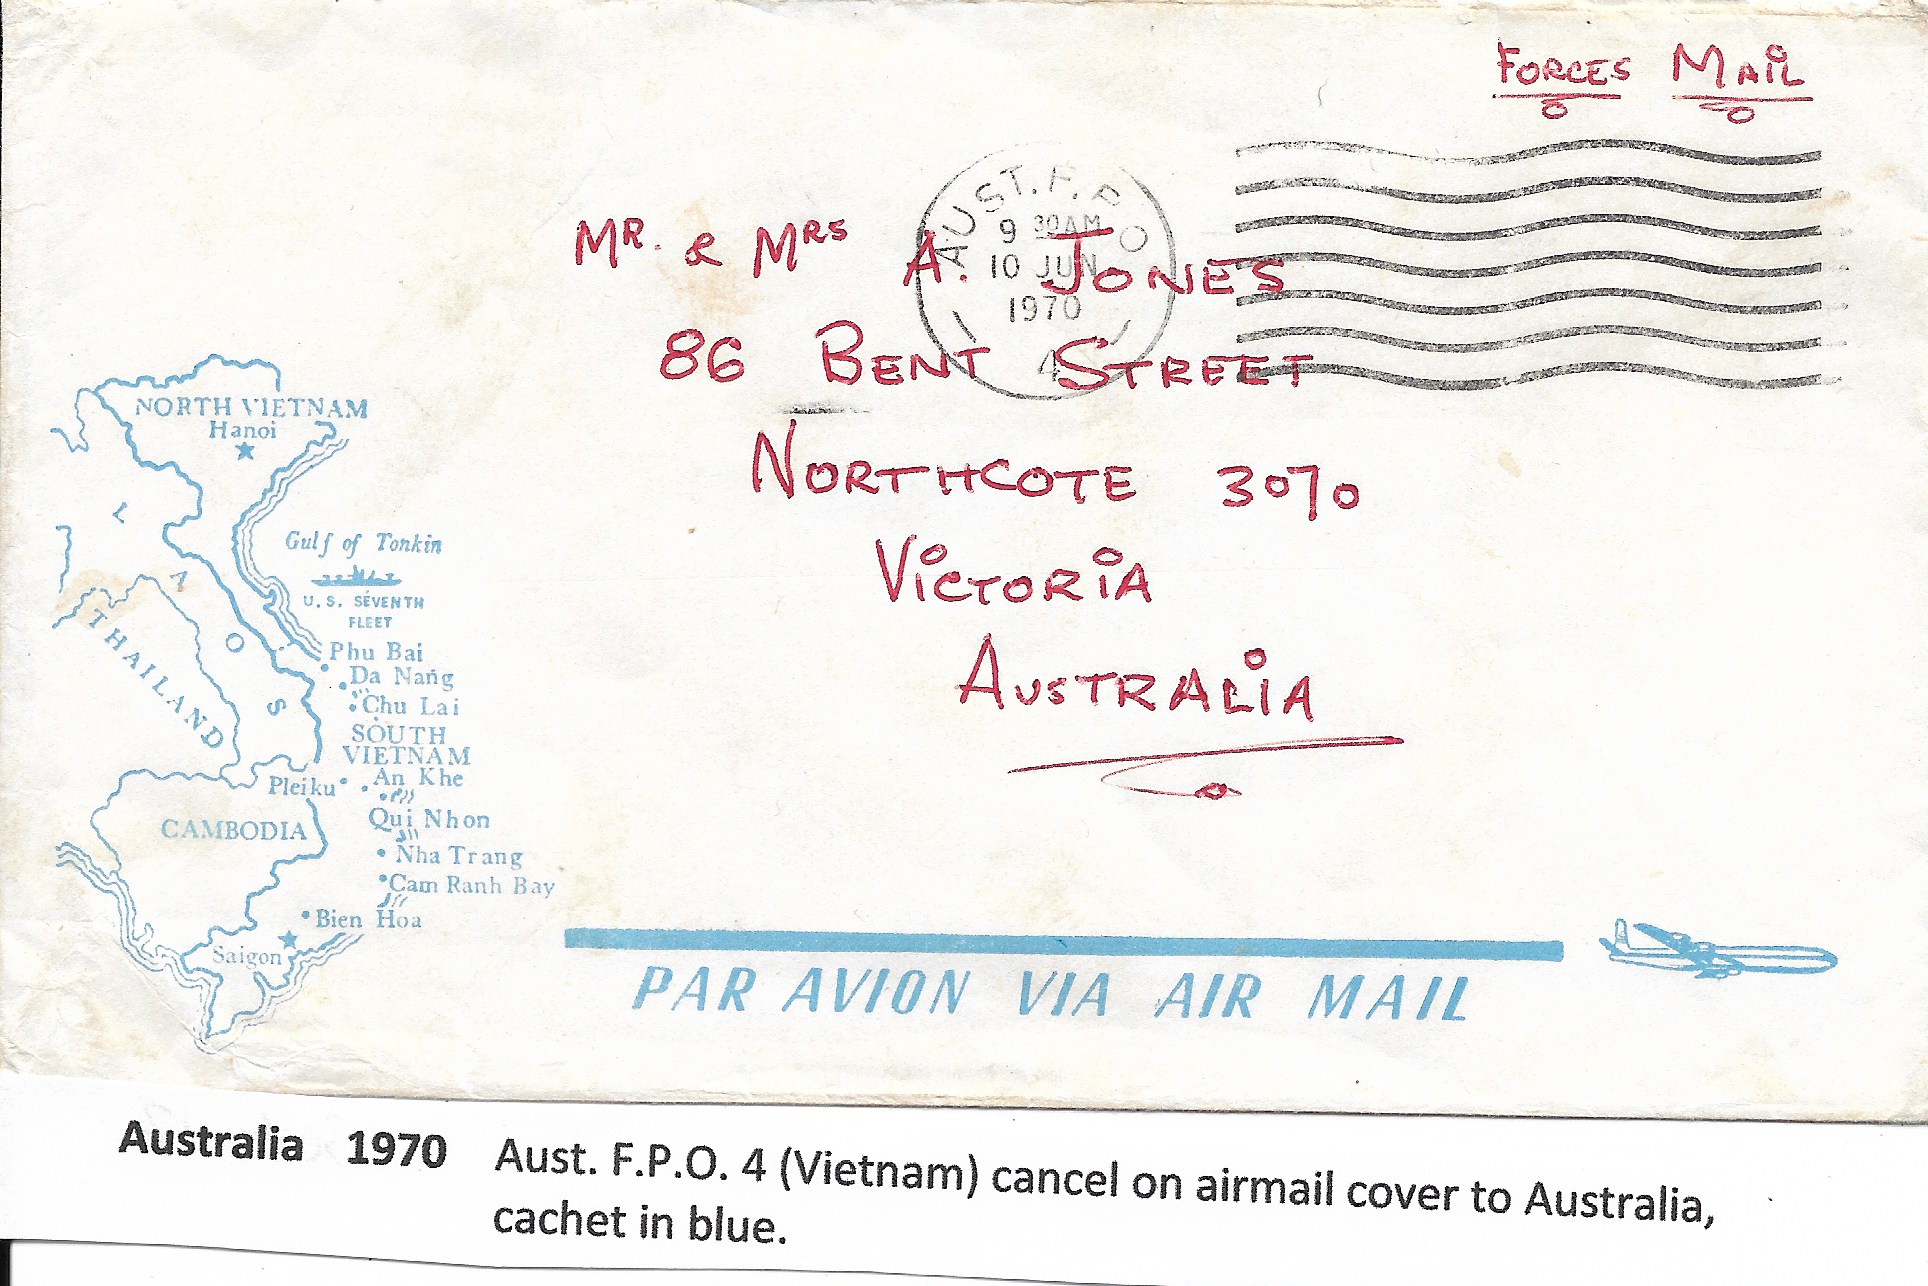 FORCES MAIL
AUST. F.P.O
9 30AM
10 JUN
1970
4
MR. & MRS A. JONES
86 BENT STREET
NORTHCOTE 3070
VICTORIA
AUSTRALIA
NORTH VIETNAM
Hanoi
LAOS
Gulf of Tonkin
U.S. SEVENTH
FLEET
THAILAND
Phu Bai
Da Nang
Chu Lai
SOUTH
VIETNAM
Pleiku
An Khe
Qui Nhon
CAMBODIA
Nha Trang
Cam Ranh Bay
Bien Hoa
Saigon
PAR AVION VIA AIR MAIL
Australia 1970 Aust. F.P.O. 4 (Vietnam) cancel on airmail cover to Australia,
cachet in blue.